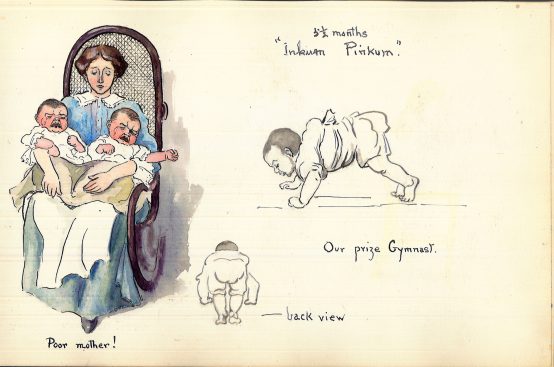 5½ months
"Inkum Pinkum".
Our prize Gymnast.
back view
Poor mother!